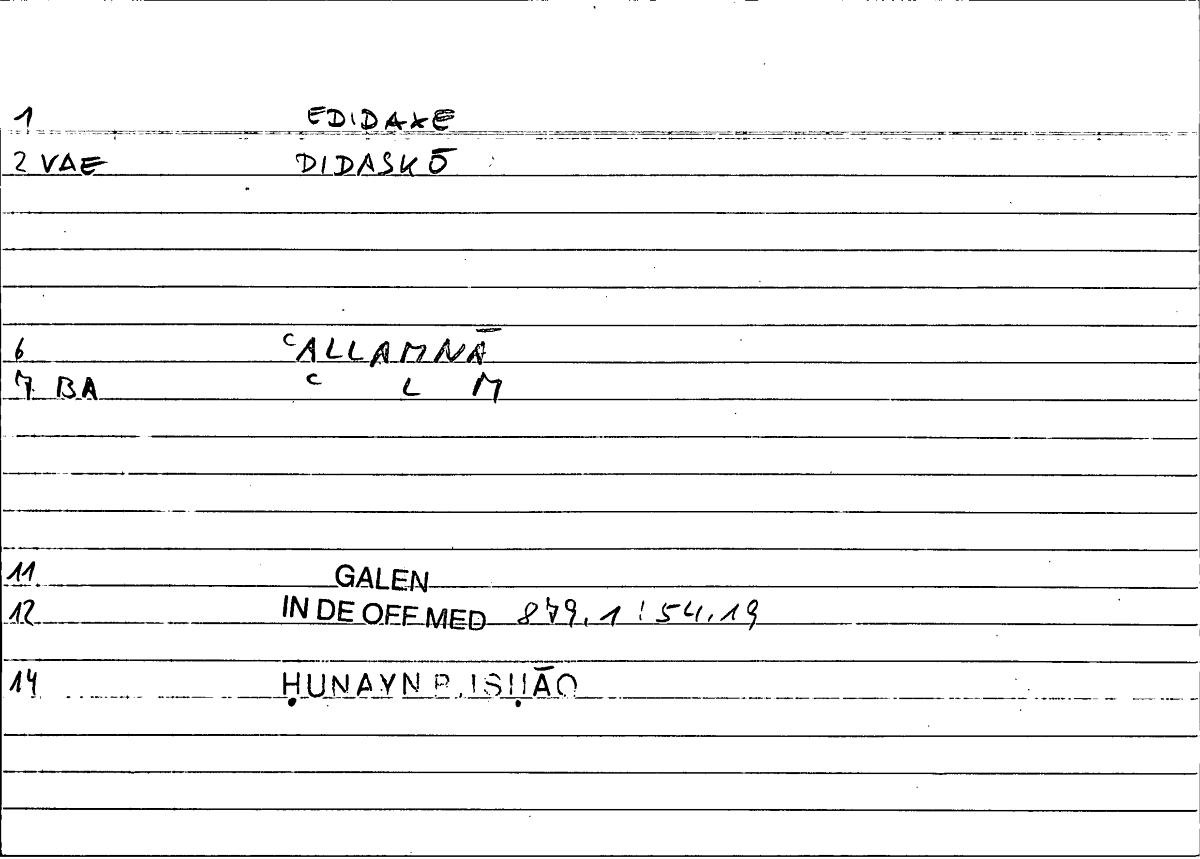 1 EDIDAXE
2 VAE DIDASKŌ
6 ᶜALLAMNĀ
7 BA ᶜ L M
11 GALEN
12 IN DE OFF MED 879.1:54.19
14 ḤUNAYN B. ISḤĀQ